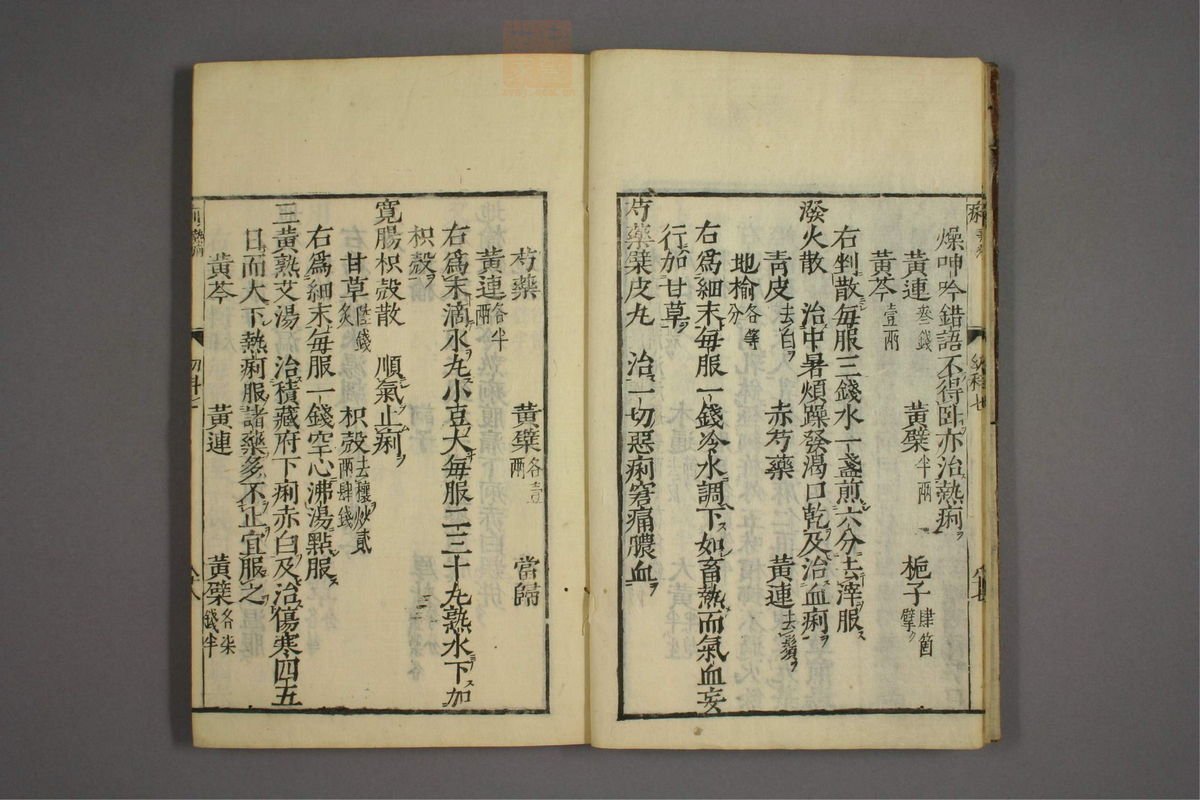 燥呻吟錯語不得卧亦治熱痢ヲ
黄連叄錢 黄檗半兩 梔子肆箇擘ク
黄芩壹兩
右剉散毎服三錢水一盞煎六分去滓服ス
潑火散 治中暑煩躁發渴口乾及治血痢ヲ
青皮去白ヲ 赤芍藥 黄連去鬚ヲ
地榆各等分
右為細末毎服一錢冷水調下如畜熱而氣血妄
行加甘草ヲ
芍藥檗皮丸 治一切惡痢窘痛膿血ヲ
芍藥 黄檗各壹兩 當歸
黄連各半兩
右為末滴水丸小豆大毎服二三十丸熱水下加
枳殼ヲ
寛腸枳殼散 順氣止痢ヲ
甘草陸錢炙 枳殼去穰炒貳兩肆錢
右為細末毎服一錢空心沸湯點服ス
三黄熟艾湯 治積藏府下痢赤白及治傷寒四五
日而大下熱痢服諸藥多不止宜服之
黄芩 黄連 黄檗各柒錢半